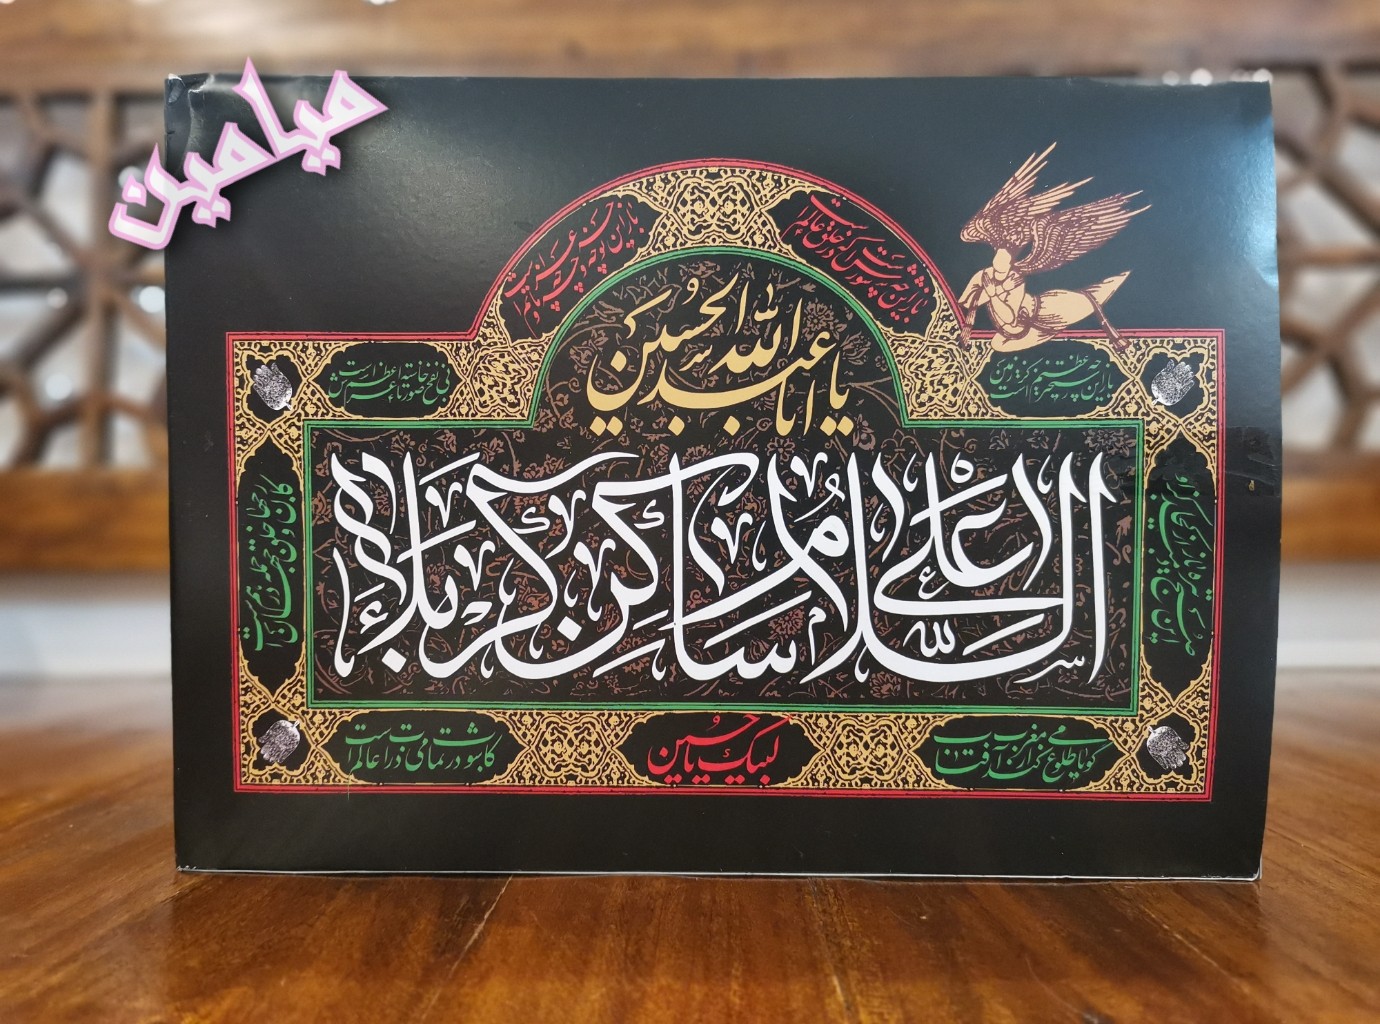 میامین
باز این چه شورش است که در خلق عالم است
باز این چه نوحه و چه عزا و چه ماتم است
یا اباعبدالله الحسین
باز این چه رستخیز عظیم است کز زمین
بی نفخ صور خاسته تا عرش اعظم است
السلام علی ساکن کربلاء
کار جهان و خلق جهان جمله درهم است
گویا طلوع می‌کند از مغرب آفتاب
لبیک یا حسین
کاشوب در تمامی ذرات عالم است